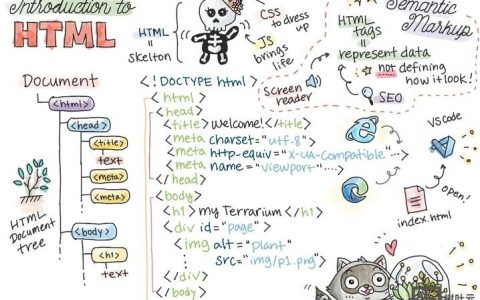 Introduction to
HTML
HTML
=
Skelton
CSS
to dress
up
JS
brings
life
Semantic
Markup
HTML
tags
=
represent data
not defining
how it look!
Screen
reader
SEO
Document
<html>
<head>
<title>
text
<meta>
<meta>
<body>
<h1>
text
HTML
Document
tree
<!DOCTYPE html>
<html>
<head>
<title> Welcome! </title>
<meta charset="utf-8">
<meta http-equiv="X-UA-Compatible"...>
<meta name="viewport"...>
</head>
<body>
<h1> my Terrarium </h1>
<div id="page">
<img alt="plant"
src="img/p1.png">
</div>
</body>
VSCode
open!
index.html